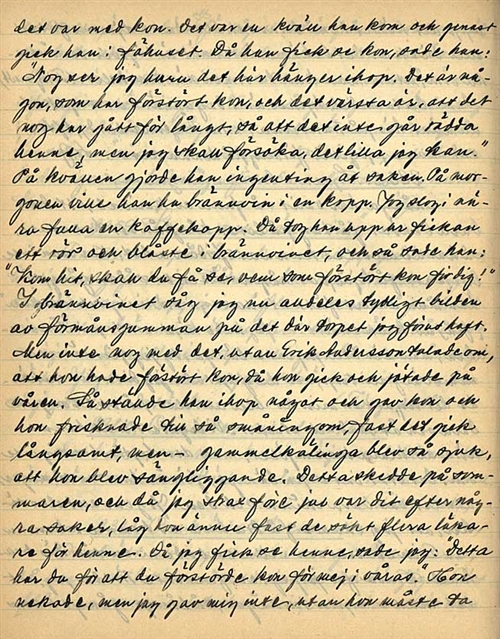 det var med kon. Det var en kväll han kom och genast
gick han i fähuset. Då han fick se kon, sade han:
"Nog ser jag huru det här hänger ihop. Det är nå-
gon, som har förstört kon, och det värsta är, att det
nog har gått för långt, så att det inte går rädda
henne, men jag skall försöka, det lilla jag kan."
På kvällen gjorde han ingenting åt saken. På mor-
gonen ville han ha brännvin i en kopp. Jag slog i nä-
ra fulla en kaffekopp. Då tog han upp ur fickan
ett rör och blåste i brännvinet, och så sade han:
"Kom hit, skall du få se, vem som förstört kon för dig!"
I brännvinet såg jag nu alldeles tydligt bilden
av förmånsgumman på det där torpet jag förut haft.
Men inte nog med det, utan Erik Andersson talade om,
att hon hade förstört kon, då hon gick och jätade på
våren. Så ställde han ihop något och gav kon och
hon frisknade till så småningom, fast det gick
långsamt, men – gammelkälinga blev så sjuk,
att hon blev sängliggande. Detta skedde på som-
maren, och då jag strax före jul var dit efter någ-
ra saker, låg hon ännu fast de sökt flera läka-
re för henne. Då jag fick se henne, sade jag: "Detta
har du för att du förstörde kon för mej i våras." Hon
nekade, men jag gav mig inte, utan hon måste ta